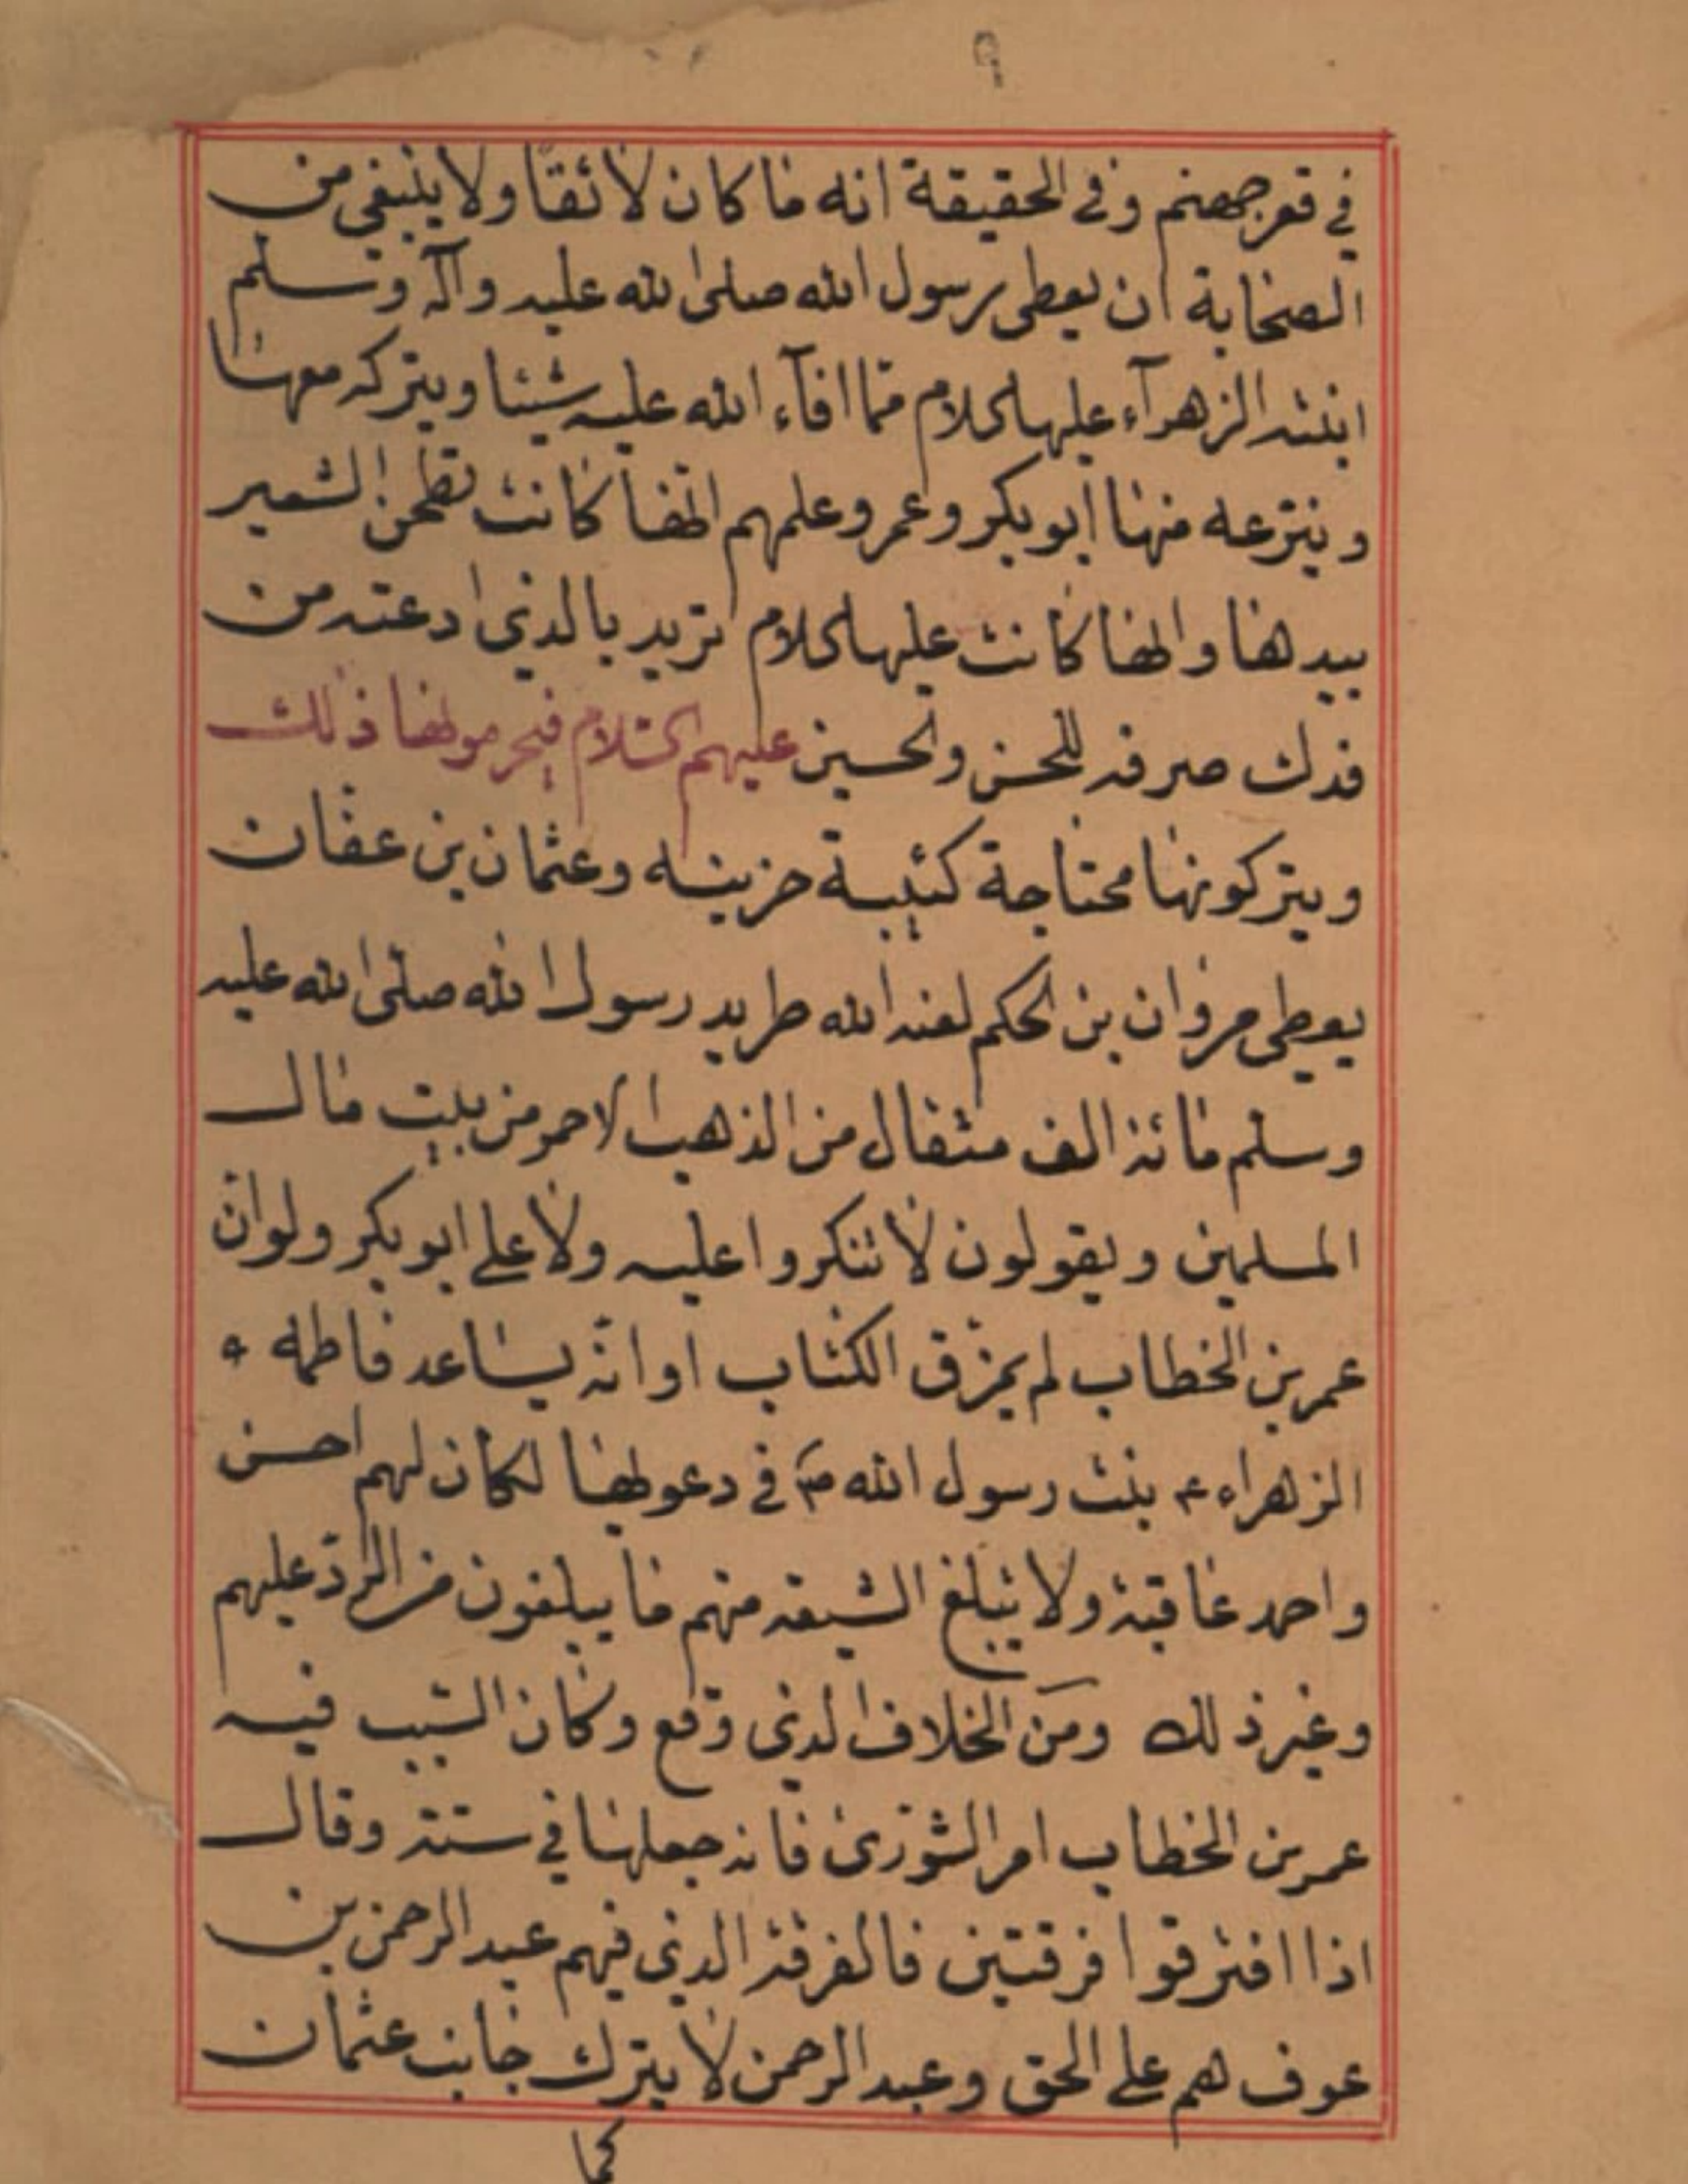 ٩
في قعر جهنم وفي الحقيقة انه ما كان لائقا ولا ينبغي من
الصحابة ان يعطي رسول الله صلى الله عليه وآله وسلم
ابنته الزهرآء عليها السلام مما افآء الله عليه شيئا ويتركه معها
وينتزعه منها ابو بكر وعمر وعلمهم انها كانت تطحن الشعير
بيدها وانها كانت عليها السلام تريد بالذي ادعته من
فدك صرفه للحسن والحسين عليهم السلام فيحرمونها ذلك
ويتركونها محتاجة كئيبة حزينه وعثمان بن عفان
يعطي مروان بن الحكم لعنه الله طريد رسول الله صلى الله عليه
وسلم مائة الف مثقال من الذهب الاحمر من بيت مال
المسلمين ويقولون لا تنكروا عليه ولا على ابو بكر ولو ان
عمر بن الخطاب لم يمزق الكتاب او انه يساعد فاطمه
الزهراء ع بنت رسول الله ص في دعوتها لكان لهم احسن
واحمد عاقبة ولا يبلغ الشيعه منهم ما يبلغون من الرد عليهم
وغير ذلك ومن الخلاف الذي وقع وكان السبب فيه
عمر بن الخطاب امر الشورى فانه جعلها في ستة وقال
اذا افترقوا فرقتين فالفرقة الذي فيهم عبد الرحمن بن
عوف هم على الحق وعبد الرحمن لا يترك جانب عثمان
كما